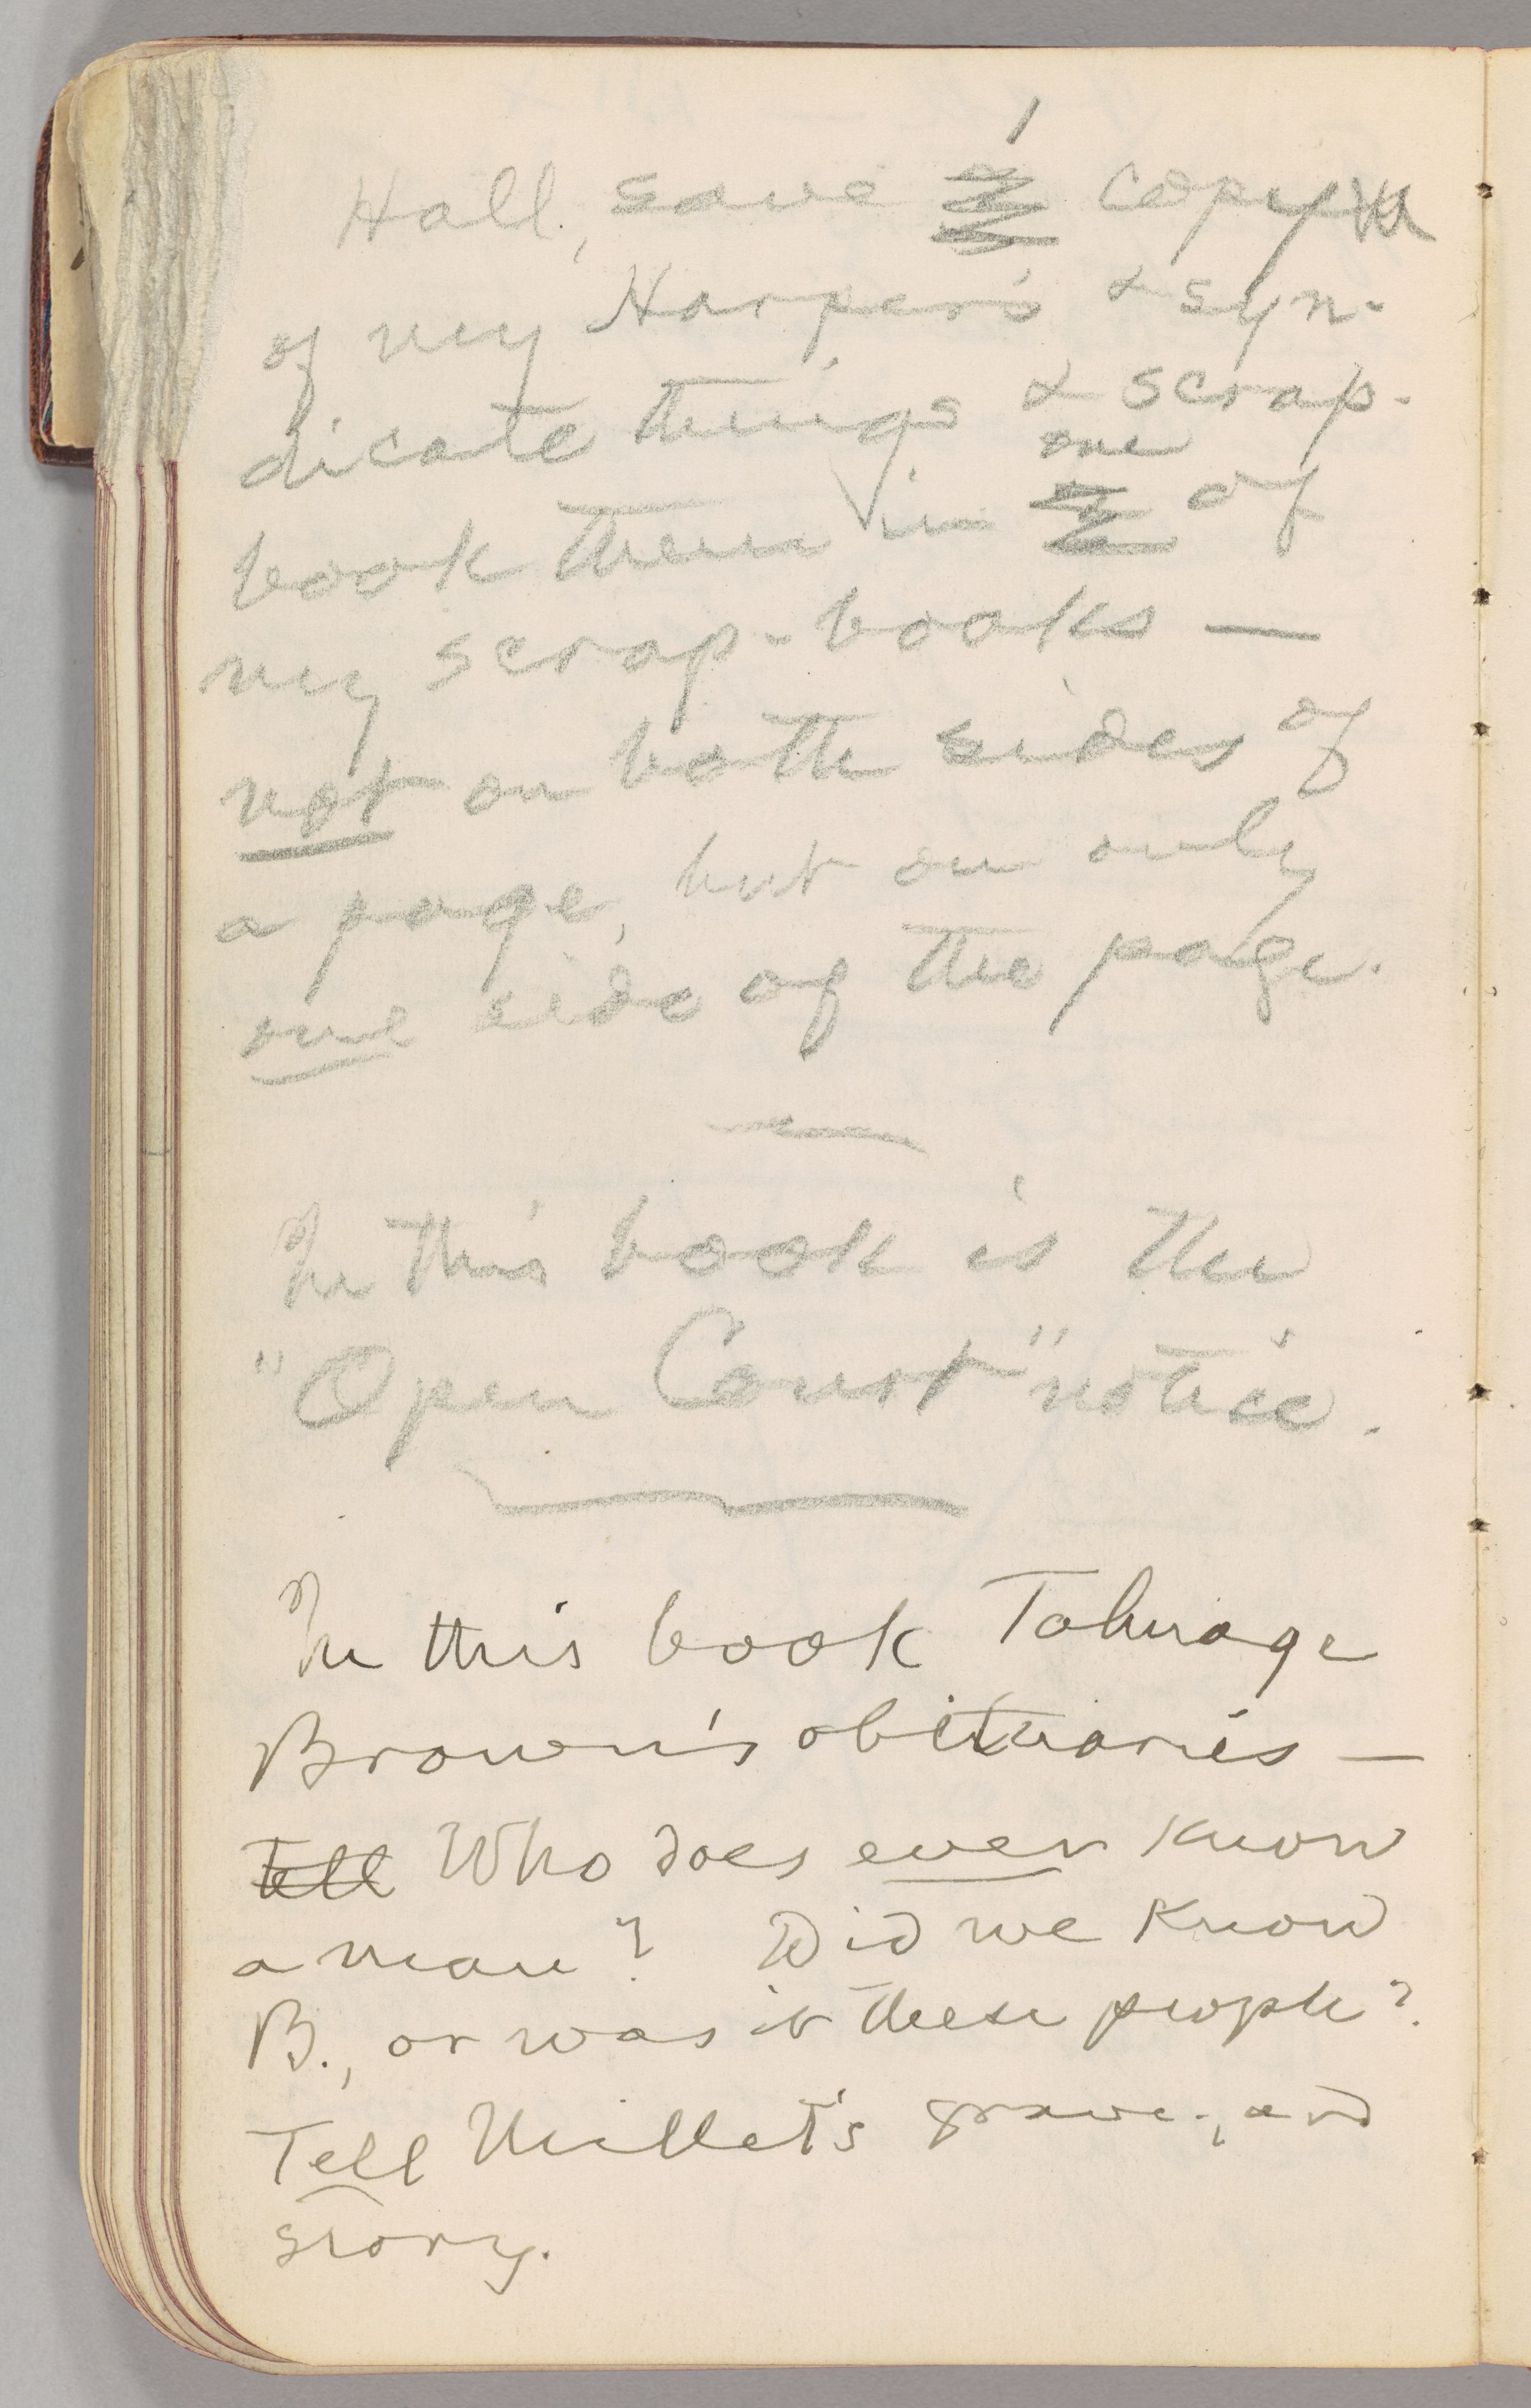 1
Hall, save copy
of my Harper's & syn-
dicate things & scrap-
one
book them in of
my scrap-books —
not on both sides of
a page, but on only
one side of the page.
In this book is the
"Open Court" notice.
In this book Talmage
Brown's obituaries —
Tell Who does ever know
a man? Did we know
B., or was it these people?
Tell Millet's grave, and
story.